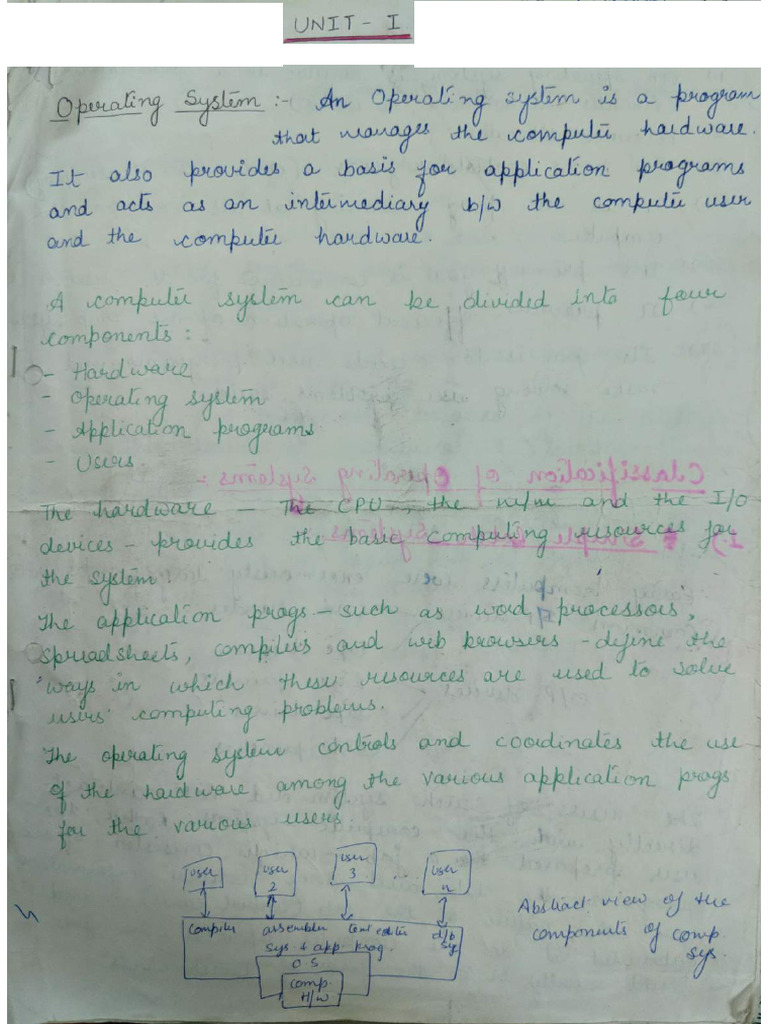 UNIT - I
Operating System :- An Operating system is a program
that manages the computer hardware.
It also provides a basis for application programs
and acts as an intermediary b/w the computer user
and the computer hardware.
A computer system can be divided into four
components :
- Hardware
- Operating system
- Application programs
- Users.
Classification of Operating Systems :-
The hardware - The CPU, the m/m and the I/O
devices - provides the basic computing resources for
the system.
The application progs - such as word processors,
spreadsheets, compilers and web browsers - define the
ways in which these resources are used to solve
users' computing problems.
The operating system controls and coordinates the use
of the hardware among the various application progs
for the various users.
user 1 user 2 user 3 ... user n
compiler assembler text editor d/b sys
sys & app. prog.
O.S
comp. H/w
Abstract view of the
components of comp.
sys.